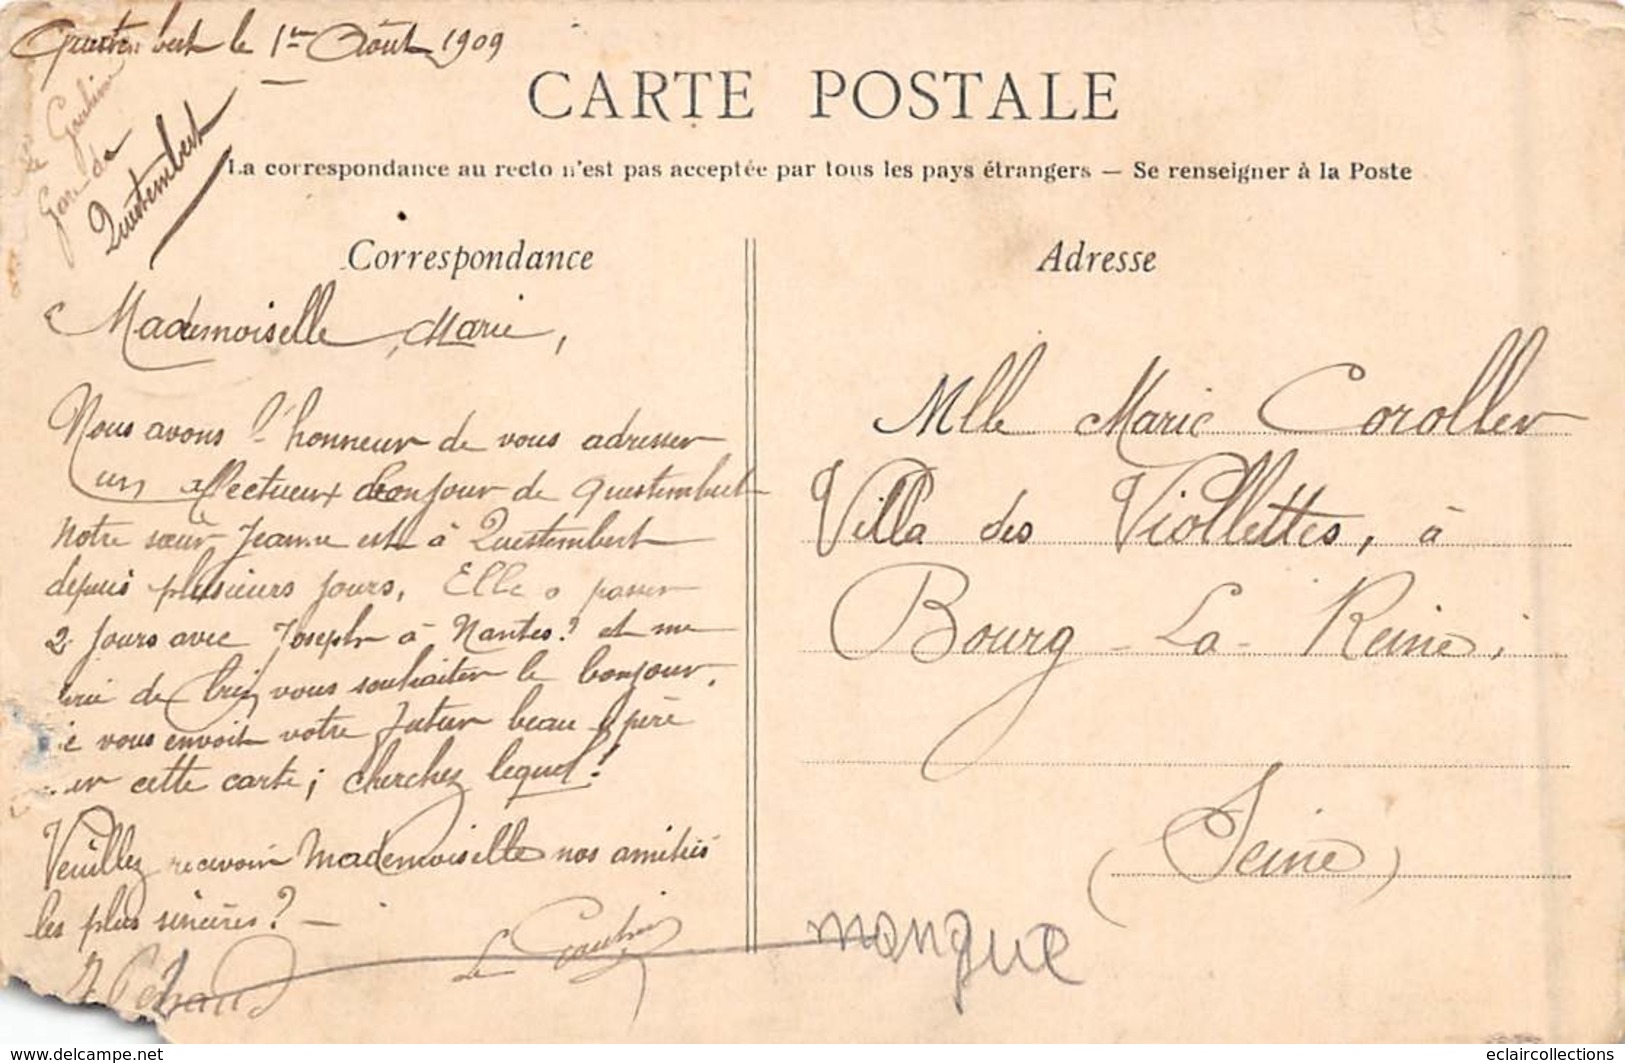 Questembert le 1er Août 1909
Gare de
Questembert
CARTE POSTALE
La correspondance au recto n'est pas acceptée par tous les pays étrangers — Se renseigner à la Poste
Correspondance
Mademoiselle Marie,
Nous avons l'honneur de vous adresser
un affectueux bonjour de Questembert
Notre sœur Jeanne est à Questembert
depuis plusieurs jours. Elle a passer
2 jours avec Joseph à Nantes? et me
prie de bien vous souhaiter le bonjour.
Je vous envoit votre futur beau père
sur cette carte; cherchez lequel!
Veuillez recevoir Mademoiselle nos amitiés
les plus sincères? —
Le
Adresse
Mlle Marie Coroller
Villa des Viollettes, à
Bourg-La-Reine,
(Seine)
manque
www.delcampe.net
eclaircollections